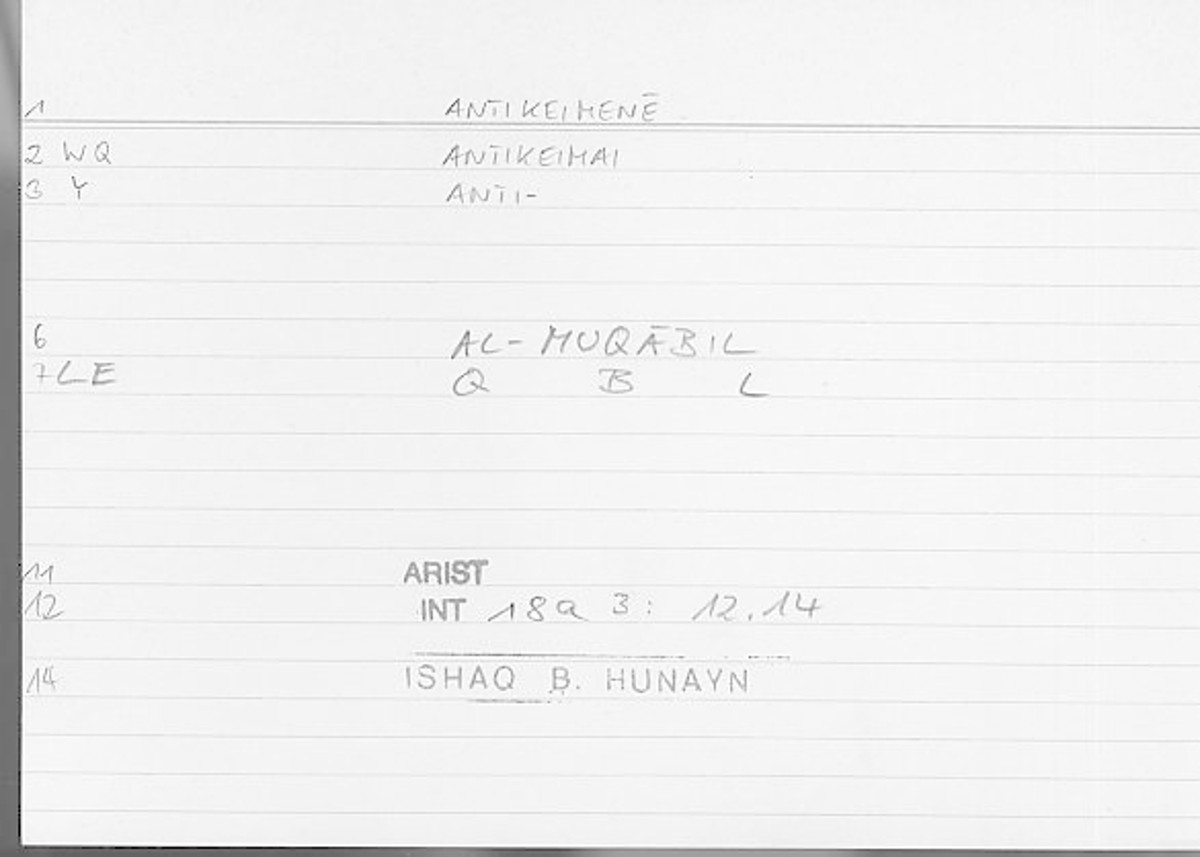 1 ANTIKEIMENĒ
2 WQ ANTIKEIMAI
3 Y ANTI-
6 AL-MUQĀBIL
7 LE Q B L
11 ARIST
12 INT 18a 3: 12.14
14 ISHAQ B. HUNAYN